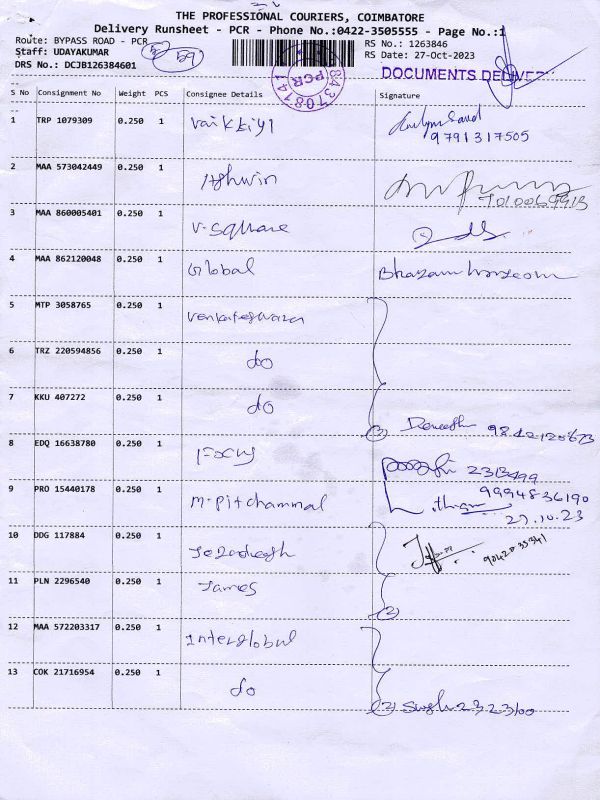 THE PROFESSIONAL COURIERS, COIMBATORE
Delivery Runsheet - PCR - Phone No.:0422-3505555 - Page No.:1
Route: BYPASS ROAD - PCR
Staff: UDAYAKUMAR
DRS No.: DCJB126384601
59
RS No.: 1263846
RS Date: 27-Oct-2023
PCR
DOCUMENTS DELIVER
S No Consignment No Weight PCS Consignee Details Signature
1 TRP 1079309 0.250 1 Vaikkiyl
9791317505
2 MAA 573042449 0.250 1 Ashwin
3 MAA 860005401 0.250 1 V-Square
4 MAA 862120048 0.250 1 Global
5 MTP 3058765 0.250 1 Venkateswara
6 TRZ 220594856 0.250 1 do
7 KKU 407272 0.250 1 do
(3)
8 EDQ 16638780 0.250 1 Focus
2313499
9 PRO 15440178 0.250 1 M.Pitchammal
9994836190
27.10.23
10 DDG 117884 0.250 1
11 PLN 2296540 0.250 1 James
(2)
12 MAA 572203317 0.250 1 Interglobal
13 COK 21716954 0.250 1 do
(2) Singh 2323100